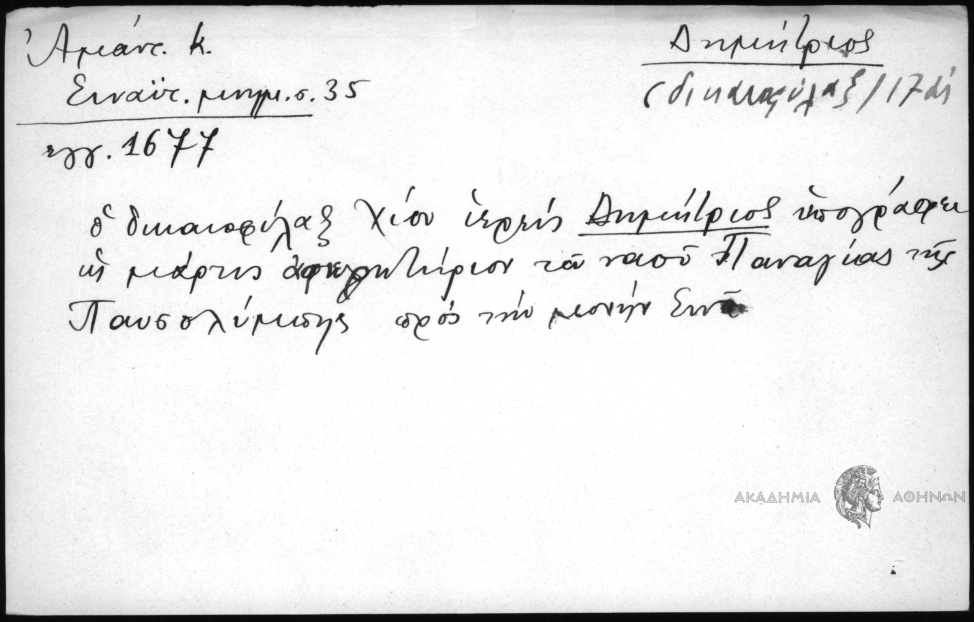 Ἀμάντ. Κ.
Δημήτριος
Σιναϊτ. μνημ. σ. 35
(δικαιοφύλαξ) 17 αἰ
ἔγγ. 1677
ὁ δικαιοφύλαξ Χίου ἱερεὺς Δημήτριος ὑπογράφει
ὡς μάρτυς ἀφιερωτήριον τοῦ ναοῦ Παναγίας τῆς
Παυσολύπης πρὸς τὴν μονὴν Σινᾶ
ΑΚΑΔΗΜΙΑ ΑΘΗΝΩΝ